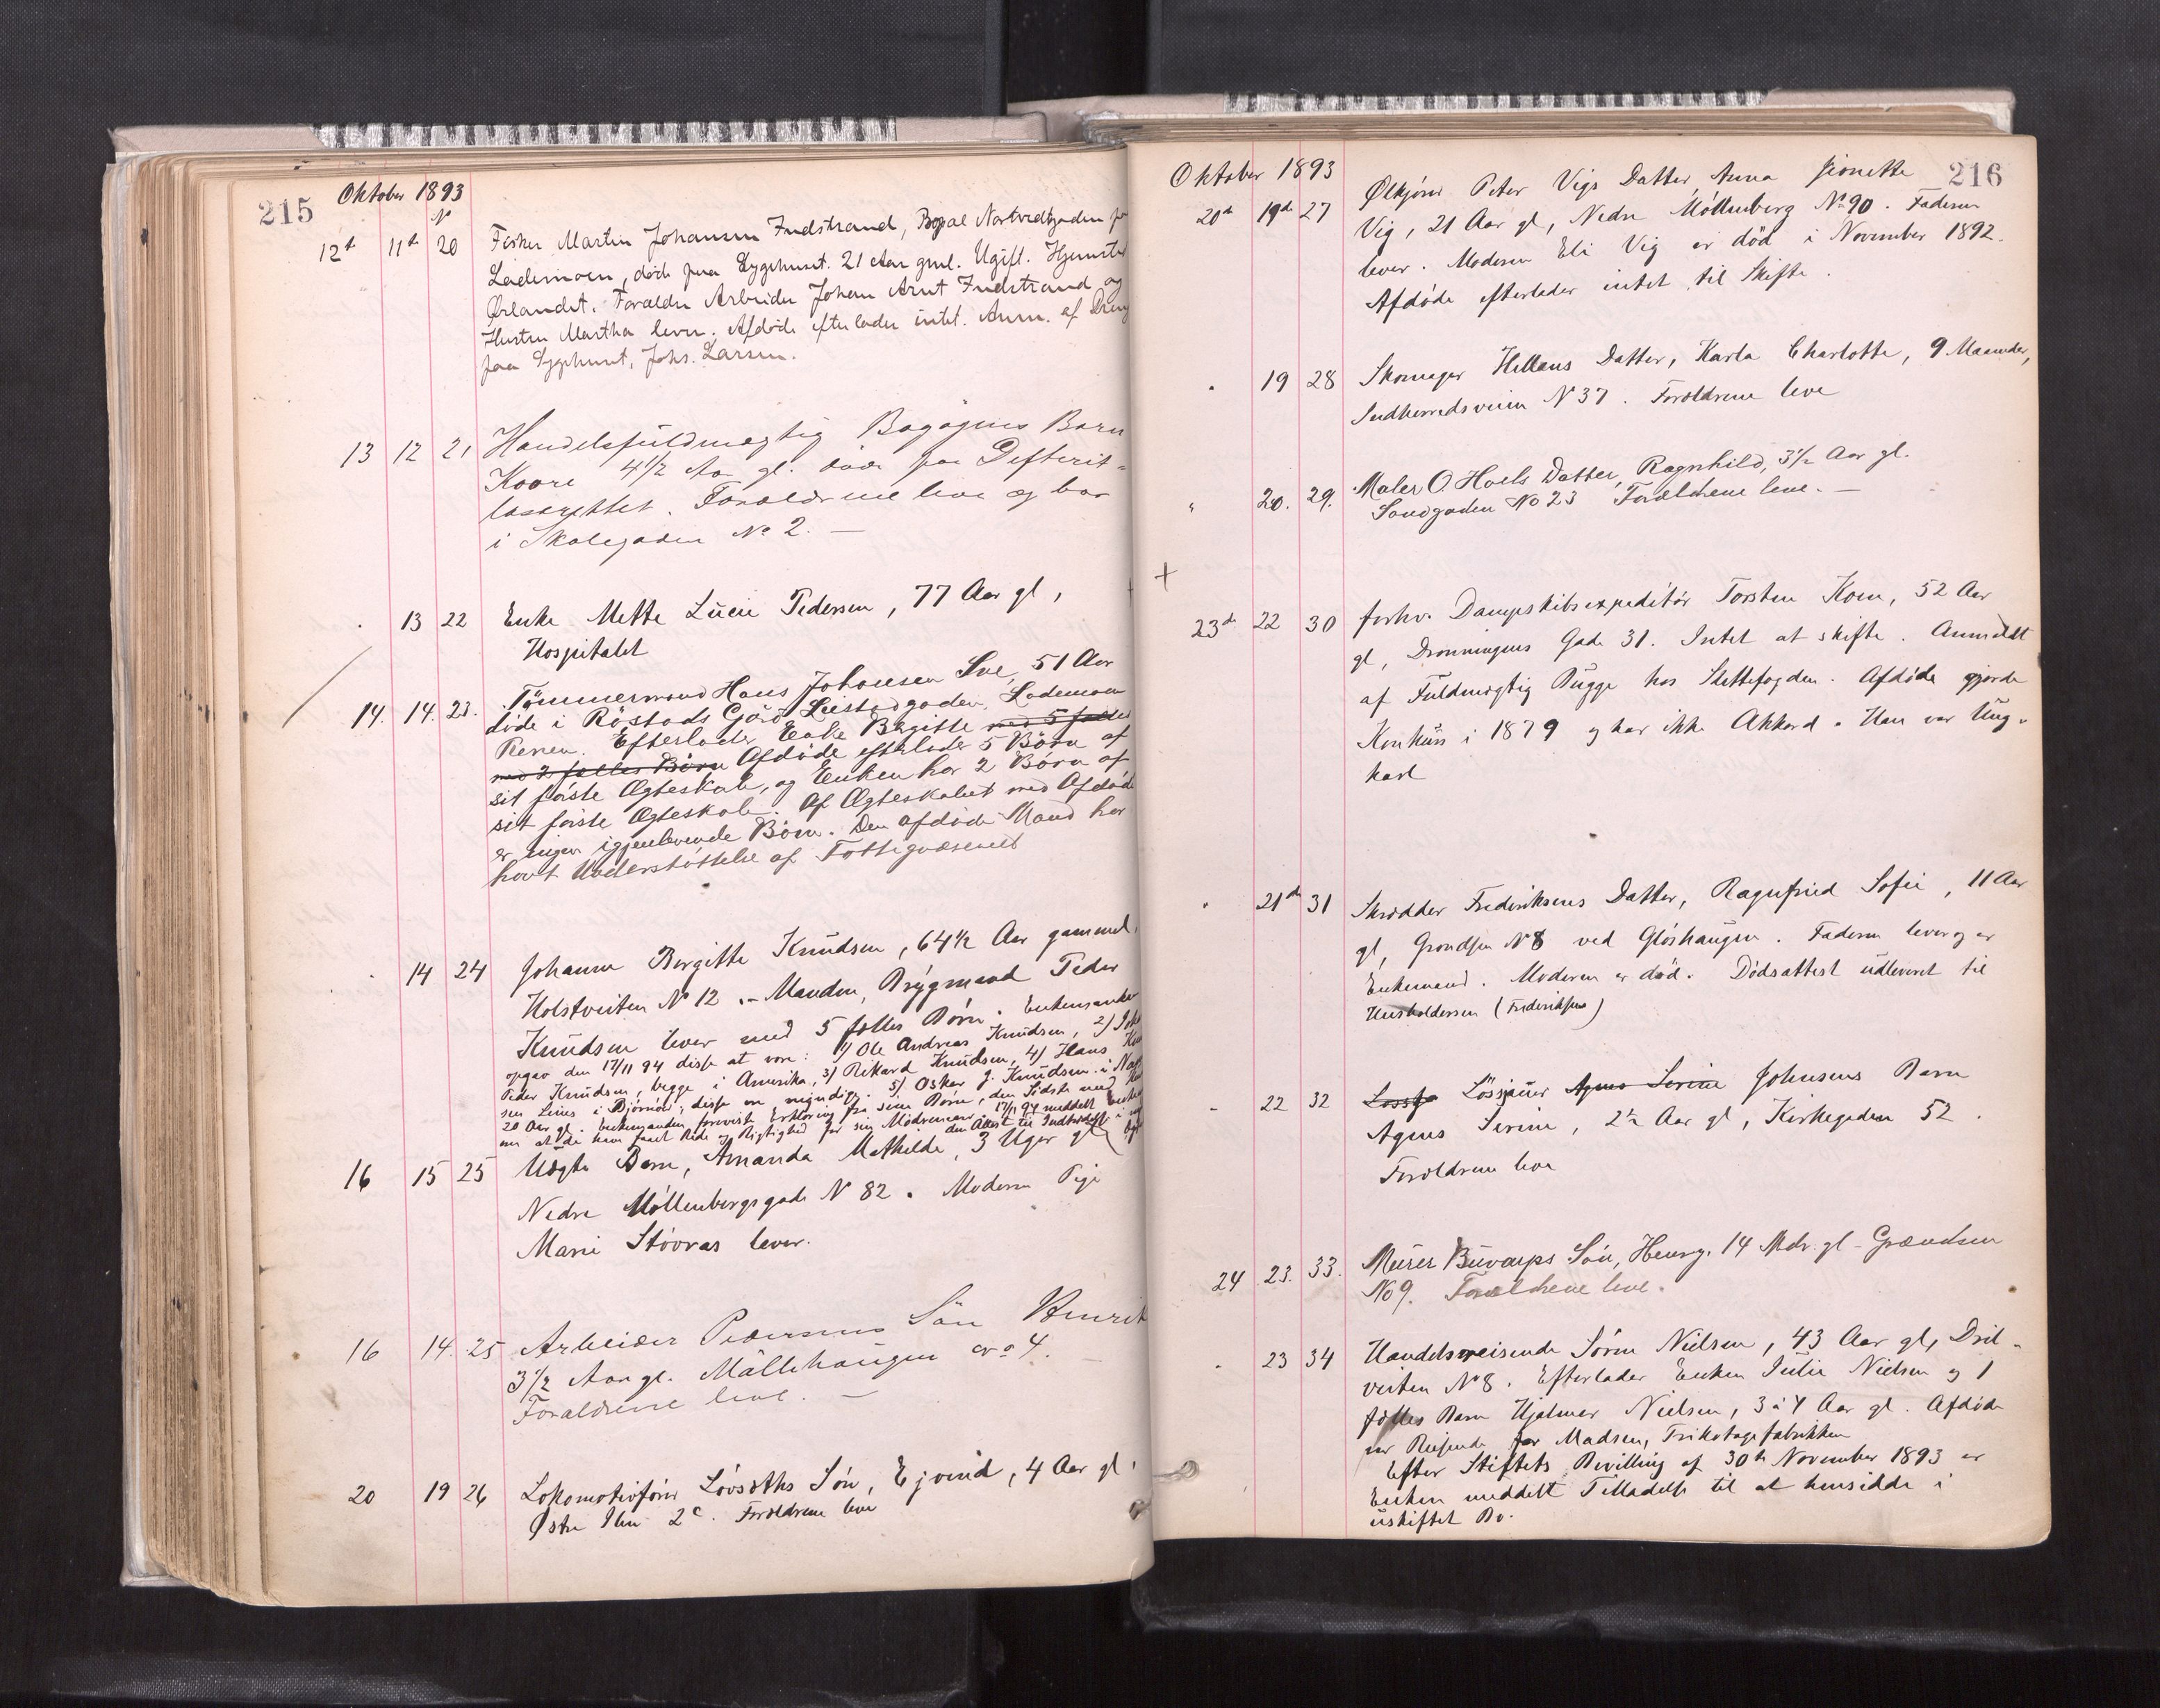 215
Oktober 1893
No
12t 11t 20 Fisker Martin Johansen Indstrand, Bopæl Nortvedtgaden paa
Lademoen, døde paa Sygehuset. 21 Aar gml. Ugift. Hjemsted
Ørlandet. Forældre Arbeider Johan Arnt Indstrand og
Hustru Martha lever. Afdøde efterlader intet. Anm. af Dreng
paa Sygehuset, Johs. Larsen.
13 12 21 Handelsfuldmægtig Bagøgens Barn
Kaare 4 1/2 Aar gl. døde paa Defterit=
lasarettet. Forældrene leve og bor
i Skolegaden No 2. —
. 13 22 Enke Mette Lucie Pedersen, 77 Aar gl,
Hospitalet
14. 14. 23. Tømmermand Hans Johansen Sve, 51 Aar
døde i Røstads Gård Leistadgaden, Lademoen
Reren. Efterlader Enke Birgitte med 5 fælles
med 2 fælles Børn Afdøde efterlader 5 Børn af
sit første Ægteskab, og Enken har 2 Børn af
sit første Ægteskab. Af Ægteskabet med Afdøde
er ingen igjenlevende Børn. Den afdøde Mand har
havt Understøttelse af Fattigvæsenet
. 14 24 Johanne Birgitte Knudsen, 64 1/2 Aar gammel,
Holstveiten No 12. – Manden, Brygmand Peder
Knudsen lever med 5 fælles Børn. Enkemanden
opgav den 17/11 94 disse at være: 1) Ole Andreas Knudsen, 2) Joh
Peder Knudsen, begge i Amerika, 3) Rikard Knudsen, 4) Hans Knud
sen Linus i Bjørnør, disse ere myndige. 5) Oskar J. Knudsen i
20 Aar gl. Enkemanden foreviste Erklæring fra sine Børn, den Sidste med
om at de have faaet Rede og Rigtighed for sin Mødrenearv. 17/11 94 meddelt Enkem
den Attest til Indtrædelse i nyt
16 15 25 Uægte Barn, Amanda Mathilde, 3 Uger gl
Nedre Møllenbergsgade N 82. Moderen Pige
Marie Støvraas lever.
16 14. 25 Arbeider Pedersens Søn Henrik
3 1/2 Aar gl. Møllehaugen No 4. —
Forældrene leve. —
20 19 26 Lokomotivfører Løvsæths Søn, Ejvind, 4 Aar gl.
Østre Ihlen 2c. Forældrene leve
216
Oktober 1893
20de 19de 27 Ølkjører Peter Vigs Datter Anna Jionette
Vig, 21 Aar gl, Nedre Møllenberg No 90. Faderen
lever. Moderen Eli Vig er død i November 1892.
Afdøde efterlader intet til Skifte.
. 19 28 Skomager Hellans Datter, Karla Charlotte, 9 Maaneder,
Indherredsveien N 37. Forældrene leve
" 20. 29. Maler O. Hoels Datter, Ragnhild, 3 1/2 Aar gl.
Sandgaden No 23 Forældrene leve. —
+
23de 22 30 forhv. Dampskibsexpeditør Torsten Korn, 52 Aar
gl, Dronningens Gade 31. Intet at skifte. Anmeldt
af Fuldmægtig Bugge hos Stiftefogden. Afdøde gjorde
Konkurs i 1879 og har ikke Akkord. Han var Ung-
karl
" 21de 31 Skrædder Frederiksens Datter, Ragnfried Sofie, 11 Aar
gl, Grændsen N 8 ved Gløshaugen. Faderen lever og er
Enkemand. Moderen er død. Dødsattest udleveret til
Husholdersen (Frederiksens)
- 22 32 Løssja Løssjauer Agnes Serine Johnsens Barn
Agnes Serine, 2 1/2 Aar gl, Kirkegaden 52.
Forældrene leve
24 23. 33. Murer Buvarps Søn, Henry. 14 Mdr. gl – Grændsen
No 9. Forældrene leve.
. 23 34 Handelsreisende Søren Nielsen, 43 Aar gl, Dril-
veiten No 8. Efterlader Enken Julie Nielsen og 1
fælles Barn Hjalmar Nielsen, 3 à 4 Aar gl. Afdøde
var Reisende for Madsen, Trikotagefabrikken
Efter Stiftets Bevilling af 30te November 1893 er
Enken meddelt Tilladelse til at hensidde i
uskiftet Bo.